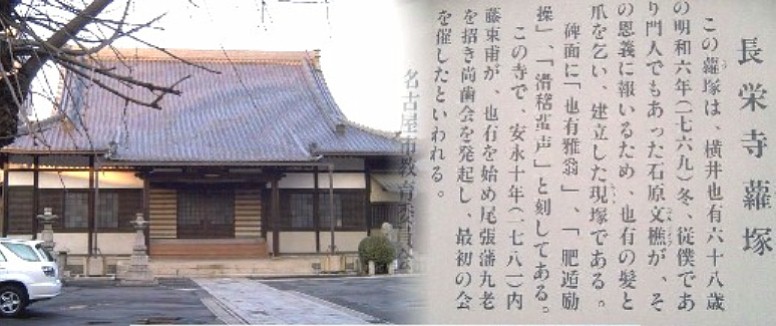 長栄寺蘿塚
この蘿塚は、横井也有六十八歳
の明和六年(一七六九)冬、従僕であ
り門人でもあった石原文樵が、そ
の恩義に報いるため、也有の髪と
爪を乞い、建立した現塚である。
碑面に「也有雅翁」、「肥遁励
操」、「滑稽蜚声」と刻してある。
この寺で、安永十年(一七八一)内
藤東甫が、也有を始め尾張藩九老
を招き尚歯会を発起し、最初の会
を催したといわれる。
名古屋市教育委員会